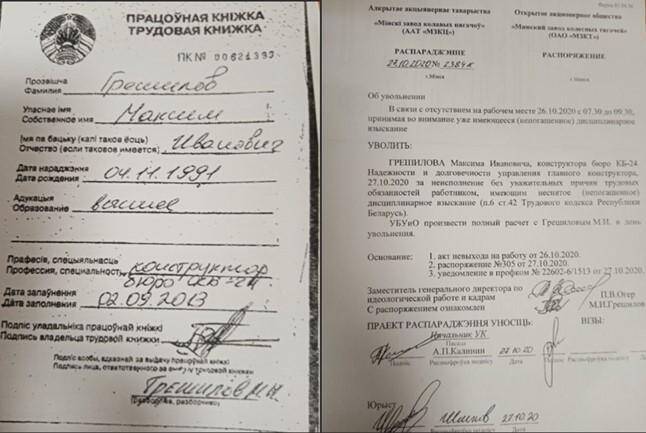 ПРАЦОЎНАЯ КНІЖКА
ТРУДОВАЯ КНИЖКА
ПК №
Прозвішча
Фамилия Грешилов
Уласнае імя
Собственное имя Максим
Імя па бацьку (калі такое ёсць)
Отчество (если таковое имеется) Иванович
Дата нараджэння
Дата рождения 04.11.1991
Адукацыя
Образование высшее
Прафесія, спецыяльнасць
Профессия, специальность конструктор
бюро
Дата запаўнення
Дата заполнения 02.09.2013
Подпіс уладальніка працоўнай кніжкі
Подпись владельца трудовой книжки
Подпіс асобы, адказнай за выдачу працоўнай кніжкі
Подпись лица, ответственного за выдачу трудовой книжки
Грешилов М.И.
(разборліва, разборчиво)
Адкрытае акцыянернае таварыства
«Мінскі завод колавых цягачоў»
(ААТ «МЗКЦ»)
РАСПАРАДЖЭННЕ
27.10.2020 № 2384к
г.Мінск
Открытое акционерное общество
«Минский завод колесных тягачей»
(ОАО «МЗКТ»)
РАСПОРЯЖЕНИЕ
г.Минск
Об увольнении
В связи с отсутствием на рабочем месте 26.10.2020 с 07.30 до 09.30,
принимая во внимание уже имеющееся (непогашенное) дисциплинарное
взыскание
УВОЛИТЬ:
ГРЕШИЛОВА Максима Ивановича, конструктора бюро КБ-24
Надежности и долговечности управления главного конструктора,
27.10.2020 за неисполнение без уважительных причин трудовых
обязанностей работником, имеющим неснятое (непогашенное)
дисциплинарное взыскание (п.6 ст.42 Трудового кодекса Республики
Беларусь).
УБУиО произвести полный расчет с Грешиловым М.И. в день
увольнения.
Основание: 1. акт невыхода на работу от 26.10.2020.
2. распоряжение №305 от 27.10.2020.
3. уведомление в профком № 22602-6/1513 от 27.10.2020.
Заместитель генерального директора по
идеологической работе и кадрам П.В.Огер
С распоряжением ознакомлен М.И.Грешилов
ПРАЕКТ РАСПАРАДЖЭННЯ УНОСІЦЬ: ВІЗЫ:
Начальник УК
Пасада
А.П.Калинин 27.10.20
Подпіс Расшыфроўка подпісу Дата
Юрист
27.10.20
Подпіс Расшыфроўка подпісу Дата